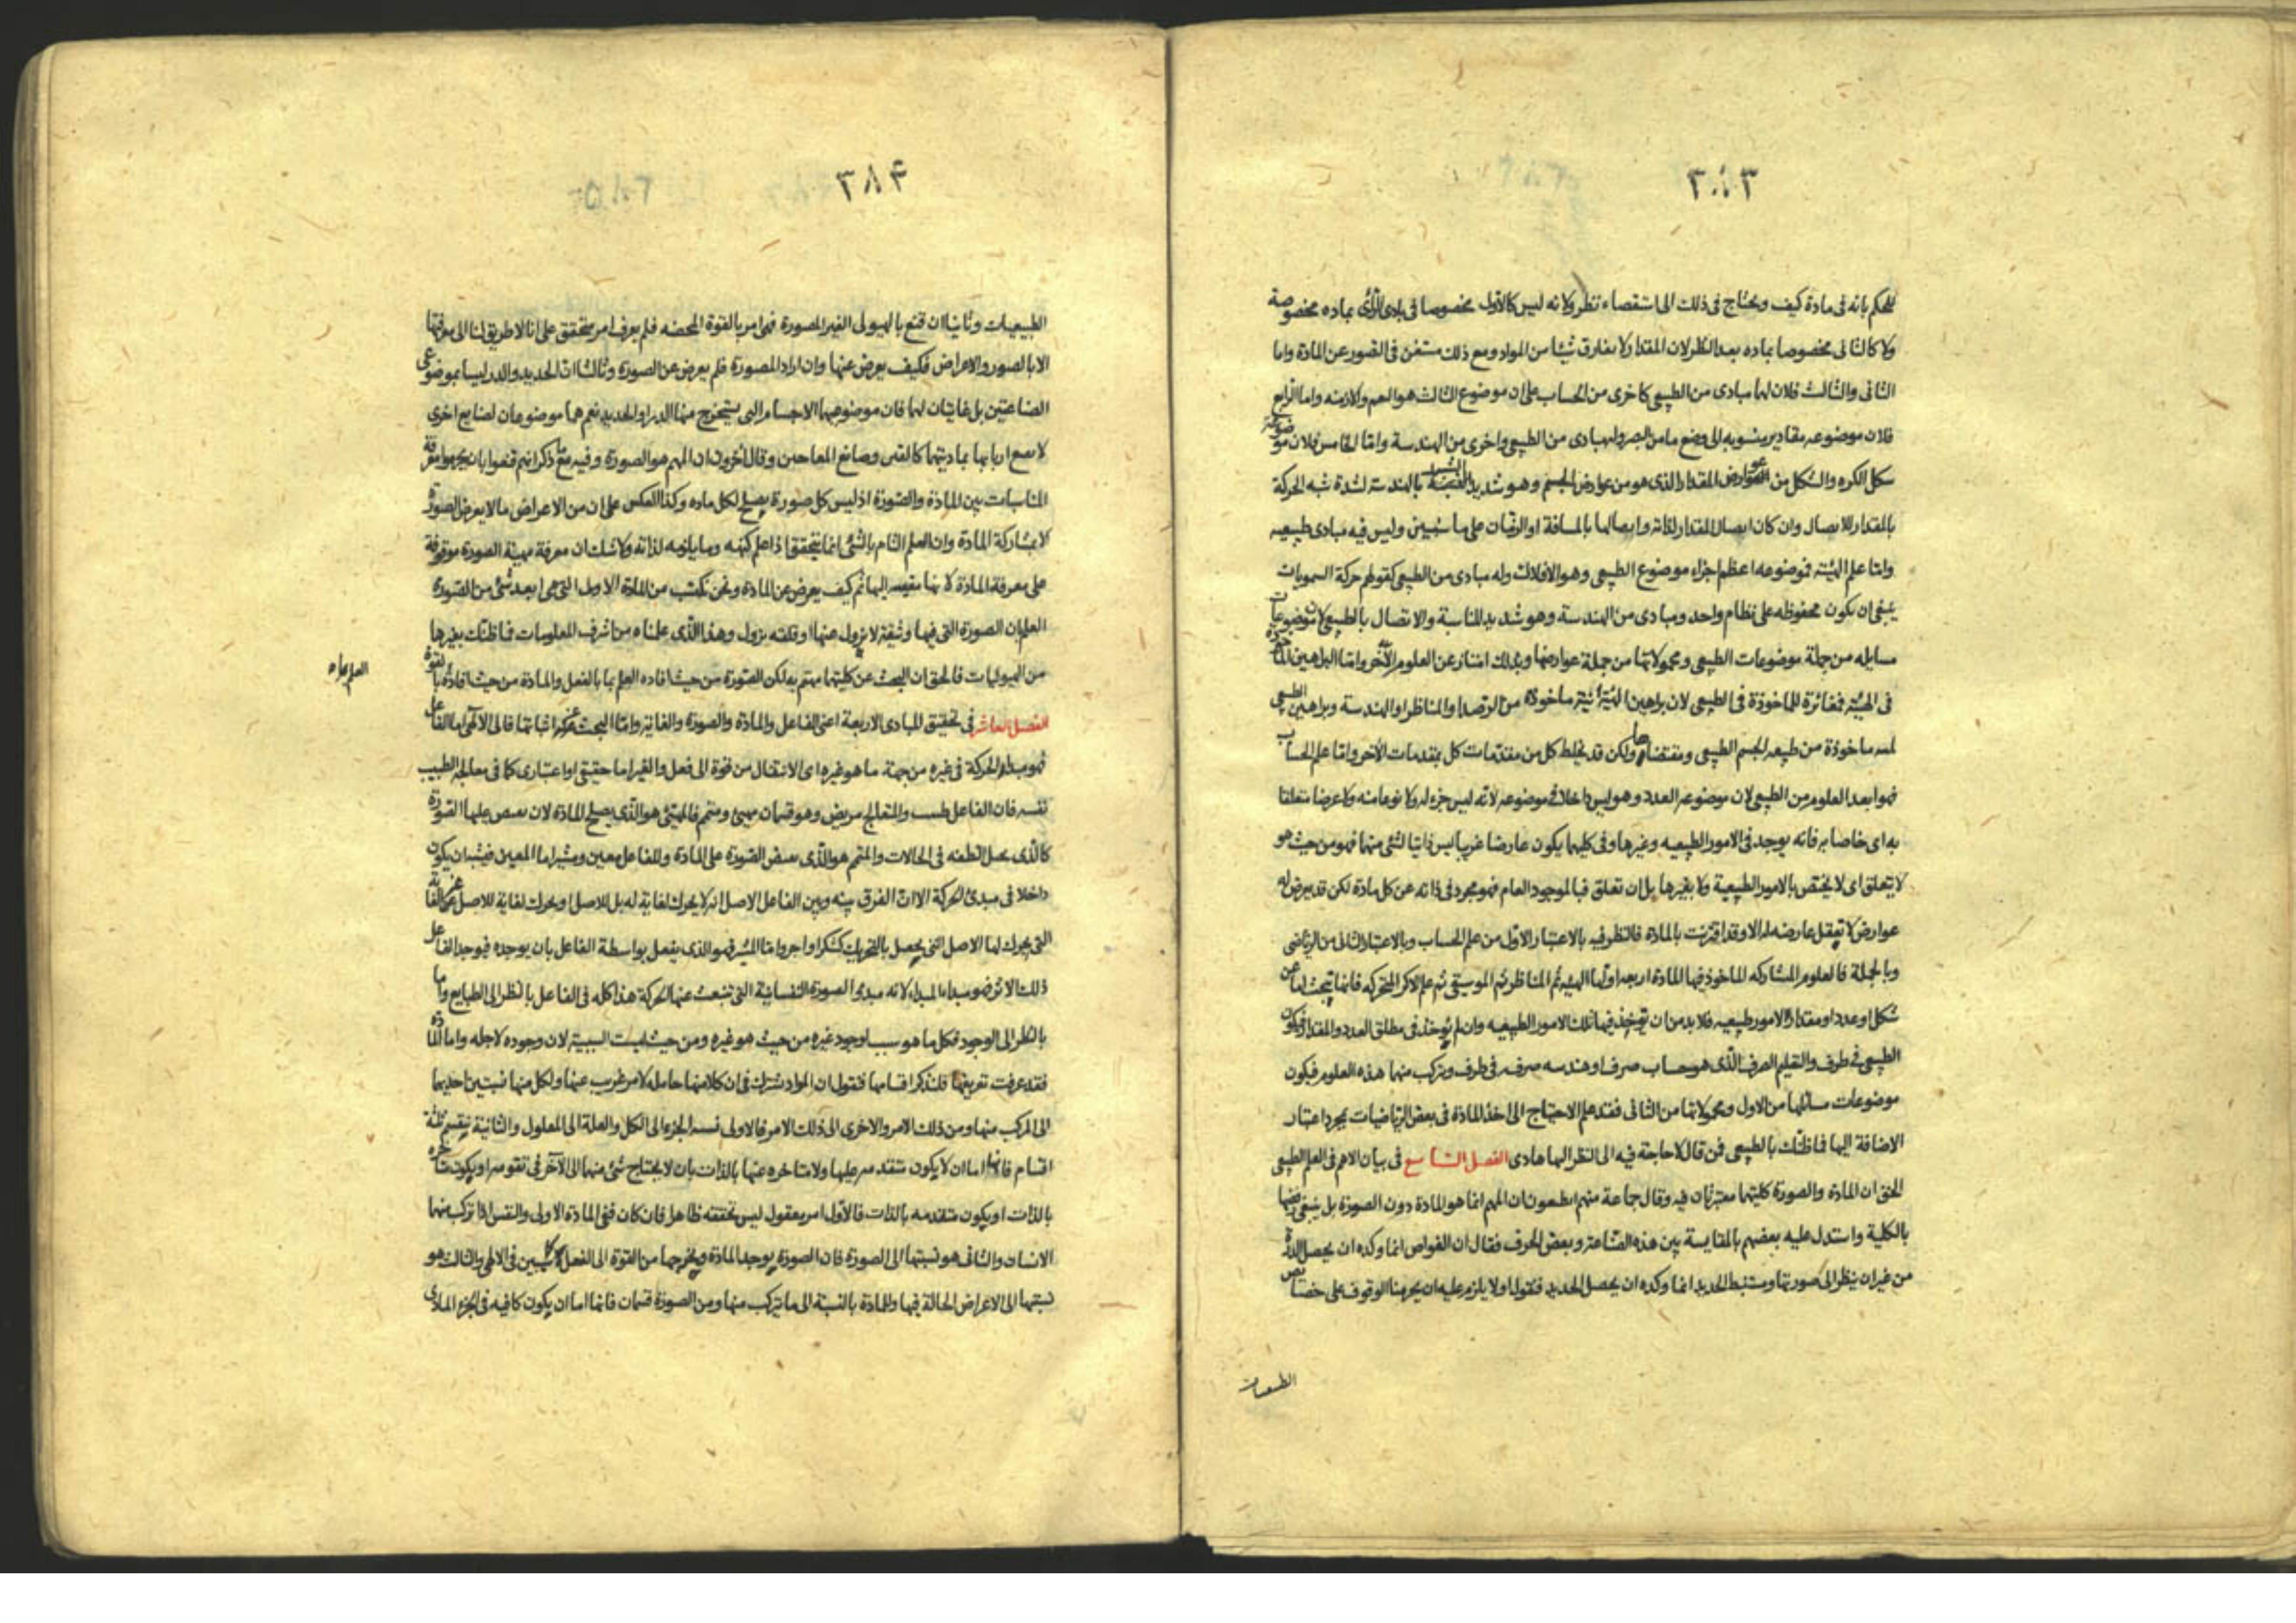 ٣٨٣
للحكم بانه فى مادة كيف ويحتاج فى ذلك الى استقصاء نظر ولانه ليس كالاول مخصوصا فى بادى الرأى بماده مخصوصة
ولا كالثانى مخصوصا بماده بعد النظر لان المقدار لا يفارق شيئا من المواد ومع ذلك مستغن فى التصور عن المادة واما
الثانى والثالث فلان لها مبادى من الطبيعى كاخرى من الحساب على ان موضوع الثالث هو النغم والازمنه واما الرابع
فلان موضوعه مقادير منسوبه الى وضع ما من البصر ولها مبادى من الطبيعى واخرى من الهندسة واما الخامس فلان موضوعه
شكل الكره والشكل من عوارض المقدار الذى هو من عوارض الجسم وهو شديد الشبه بالهندسة لشدة شبه الحركة
بالمقدار للاتصال وان كان اتصال المقدار لذاته واتصالها بالمسافة او الزمان على ما سنبين وليس فيه مبادى طبيعيه
واما علم الهيئة فموضوعه اعظم اجزاء موضوع الطبيعى وهو الافلاك وله مبادى من الطبيعى كقولهم حركة السمويات
ينبغى ان يكون محفوظه على نظام واحد ومبادى من الهندسة وهو شديد المناسبة والاتصال بالطبيعى لان موضوعات
مسايله من جملة موضوعات الطبيعى ومحمولاتها من جملة عوارضها وبذلك امتاز عن العلوم الاخر واما البراهين المأخوذة
فى الهيئة فمغائرة للماخوذة فى الطبيعى لان براهين الهيئة انية ماخوذة من الرصد او المناظر او الهندسة وبراهين الطبيعى
لميه ماخوذة من طبيعه الجسم الطبيعى ومقتضاها ولكن قد يخلط كل من مقدمات كل بمقدمات الآخر واما علم الحساب
فهو ابعد العلوم من الطبيعى لان موضوعه العدد وهو ليس داخلا فى موضوعه لانه ليس جزء له ولا نوعا منه ولا عرضا متعلقا
به اى خاصا به فانه يوجد فى الامور الطبيعيه وغيرها وفى كليهما يكون عارضا غريبا ليس ذاتيا لشئ منهما فهو من حيث هو
لا يتعلق اى لا يختص بالامور الطبيعية ولا بغيرها بل ان تعلق فبالموجود العام فهو مجرد فى ذاته عن كل مادة لكن قد يعرض له
عوارض لا تعقل عارضه له الا وقد اقترنت بالمادة فالنظر فيه بالاعتبار الاول من علم الحساب وبالاعتبار الثانى من الرياضى
وبالجملة فالعلوم المشاركه الماخوذ فيها المادة اربعه اولها الهيئه ثم المناظر ثم الموسيقى ثم علم الاكر المتحركه فانها تبحث لها عن
شكل او عدد او مقدار لامور طبيعيه فلا بد من ان تؤخذ فيها تلك الامور الطبيعيه وان لم يؤخذ فى مطلق العدد والمقدار فيكون
الطبيعى فى طرف والتعليم الصرف الذى هو حساب صرف او هندسه صرفه فى طرف ويتركب منهما هذه العلوم فيكون
موضوعات مسائلها من الاول ومحمولاتها من الثانى فقد علم الاحتياج الى اخذ المادة فى بعض الرياضيات بمجرد اعتبار
الاضافة اليها فما ظنك بالطبيعى فمن قال لا حاجة فيه الى النظر اليها هاذى الفصل التاسع فى بيان الاهم فى العلم الطبيعى
الحق ان المادة والصورة كليهما معتبرتان فيه وقال جماعة منهم انطيفون ان المهم انما هو المادة دون الصورة بل ينبغى رفضها
بالكلية واستدل عليه بعضهم بالمقايسة بين هذه الصناعة وبعض الحرف فقال ان الغواص انما وكده ان يحصل الدر
من غير ان ينظر الى صورتها ومستنبط الحديد انما وكده ان يحصل الحديد فنقول اولا يلزم عليه ان يحرمنا الوقوف على خصائص
الطبيعيات
٣٨۴
الطبيعيات وثانيا ان قنع بالهيولى الغير المصورة فهى امر بالقوة المحضه فلم يعرف امر متحقق على انا لا طريق لنا الى معرفتها
الا بالصور والاعراض فكيف يعرض عنها وان اراد المصورة فلم يعرض عن الصورة وثالثا ان الحديد والدر ليسا بموضوعى
الصناعتين بل غايتان لهما فان موضوعهما الاجسام التى يستخرج منها الدر او الحديد نعم هما موضوعان لصنايع اخرى
وقال آخرون ان المهم هو الصورة وفيه مع ما ذكر انهم قنعوا بان يجهلوا معرفة
المناسبات بين المادة والصورة اذ ليس كل صورة يصلح لكل ماده وكذا العكس على ان من الاعراض ما لا يعرض الصورة
لا بمشاركة المادة وان العلم التام بالشئ انما يتحقق اذا علم كنهه وما يلزمه لذاته ولا شك ان معرفة مهية الصورة موقوفة
على معرفة المادة لانها مقيسه اليها ثم كيف يعرض عن المادة ونحن نكتسب من المادة الاولى التى هى ابعد شئ من الصورة
العلم بان الصورة التى فيها وشيقة لا يزول عنها او قلقه يزول وهذا الذى علمناه من اشرف المعلومات فما ظنك بغيرها
من الهيوليات فالحق ان البحث عن كليتهما مهتم به لكن الصورة من حيث افاده العلم بها بالفعل والمادة من حيث افادته بالقوة
العلم بما ه
الفصل العاشر فى تحقيق المبادى الاربعة اعنى الفاعل والمادة والصورة والغاية واما البحث عن اثباتها فالى الالٓهى اما الفاعل
فهو مبدء الحركة فى غيره من جهة ما هو غيره اى الانتقال من قوة الى فعل والغير اما حقيقى او اعتبارى كما فى معالجة الطبيب
نفسه فان الفاعل طبيب والمتعالج مريض وهو قسمان مهيئ ومتمم فالمهيئ هو الذى يصلح المادة لان يفيض عليها الصورة
كالذى يحيل النطفه فى الحالات والمتمم هو الذى يفيض الصورة على المادة وللفاعل معين ومشير اما المعين فيشبه ان يكون
داخلا فى مبدئ الحركة الا ان الفرق بينه وبين الفاعل الاصل انه لا يحرك لغاية له بل للاصل او يحرك لغاية للاصل غير الغاية
التى يحرك لها الاصل التى يحصل بالتحريك كشكر او اجر واما المشير فهو الذى يفعل بواسطة الفاعل بان يوجده فيوجد الفاعل
ذلك الاثر فهو مبداء المبداء لانه مبدء الصورة النفسانية التى تنبعث عنها الحركة هذا كله فى الفاعل بالنظر الى الطبايع واما
بالنظر الى الوجود فكل ما هو سبب لوجود غيره من حيث هو غيره ومن حيث ليست السببية لان وجوده لاجله واما المادة
فقد عرفت تعريفها فلنذكر اقسامها فنقول ان المواد تشترك فى ان كلا منها حامله لامر غريب عنها ولكل منها نسبتين احديهما
الى المركب منها ومن ذلك الامر والاخرى الى ذلك الامر فالاولى نسبه الجزء الى الكل والعلة الى المعلول والثانية ينقسم ثلثة
اقسام فانها اما ان لا يكون متقدمه عليها ولا متاخره عنها بالذات بان لا يحتاج شئ منهما الى الآخر فى تقومه او يكون متاخره
بالذات او يكون متقدمه بالذات فالاول امر معقول ليس تحققه ظاهرا فان كان ففى المادة الاولى والنفس اذا تركب منهما
الانسان والثانى هو نسبتها الى الصورة فان الصورة يوجد المادة ويخرجها من القوة الى الفعل كما يبين فى الالٓهى والثالث هو
نسبتها الى الاعراض الحالة فيها والمادة بالنسبة الى ما يتركب منها ومن الصورة قسمان فانها اما ان يكون كافيه فى الجزء المادى